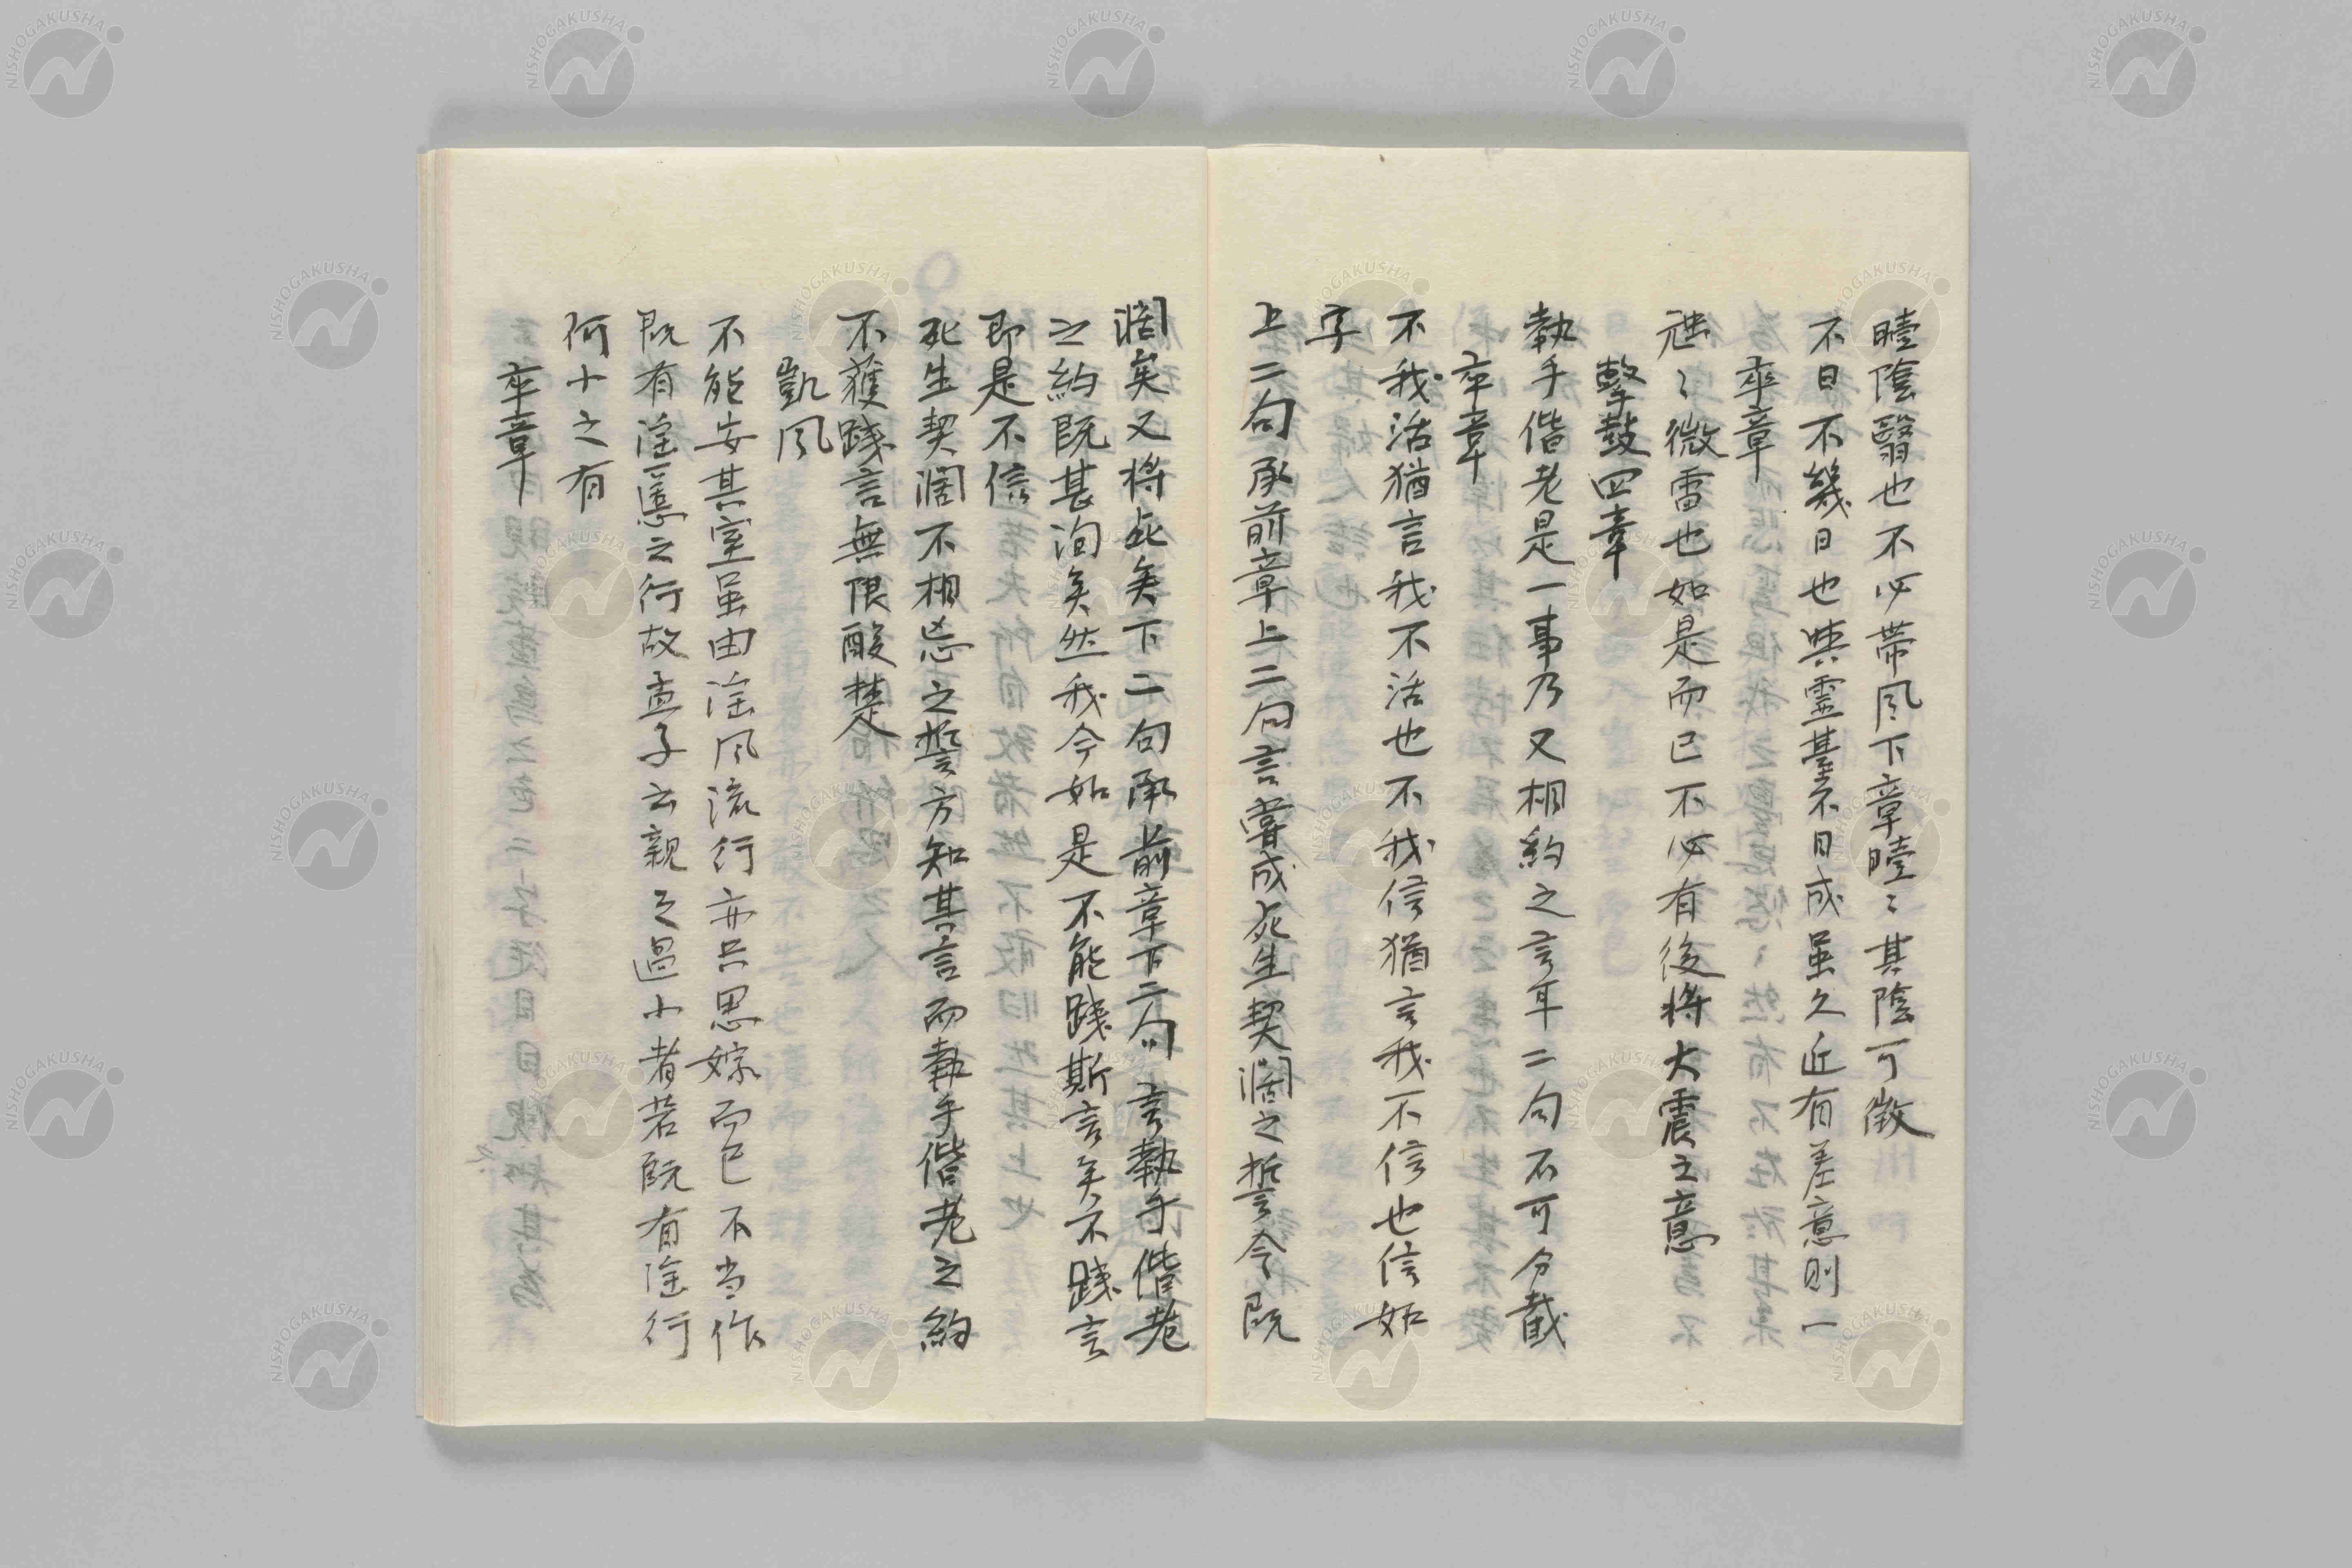 曀陰翳也不必帶風下章曀〻其陰可徵
不日不幾日也與靈臺不日成虽久近有差意則一
卒章
虺〻微雷也如是而已不必有後將大震之意
擊鼓四章
執手偕老是一事乃又相約之言耳二句不可分截
卒章
不我活猶言我不活也不我信猶言我不信也信如
字
上二句承前章上二句言嘗成死生契濶之誓今既
濶矣又將死矣下二句承前章下二句言執手偕老
之約既甚洵矣然我今如是不能踐斯言矣不踐言
即是不信
死生契濶不相忘之誓方知其言而執手偕老之約
不獲踐言無限酸楚
凱風
不能安其室虽由淫風流行亦只思嫁而已不当作
既有淫慝之行故孟子云親之過小者若既有淫行
何小之有
卒章
NISHOGAKUSHA